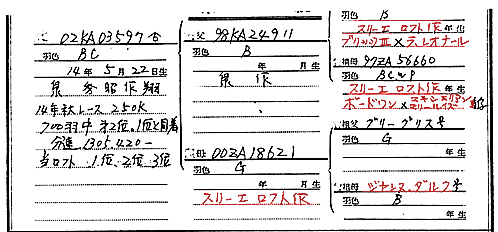 02KA03597 合
羽色 BC
14年 5月 22日生
作翔
14年秋レース 250K
700羽中 第2位、1位と同着
分速 1305,420
当ロフト 1位、2位、3位
父 98KA24911
羽色 B
年 月 生
作
母 00ZA18621
羽色 G
年 月 生
スリーエ ロフト作
羽色 B
スリーエ ロフト作 年 生
ブリックⅢ×ラ、レオナール
97ZA56660
羽色 BCWP
スリーエ ロフト作 年 生
ボードワン×
祖父 ブリーブリス号
羽色 G
年 月 生
祖母 ジャンヌ、ダルク号
羽色 B
年 月 生